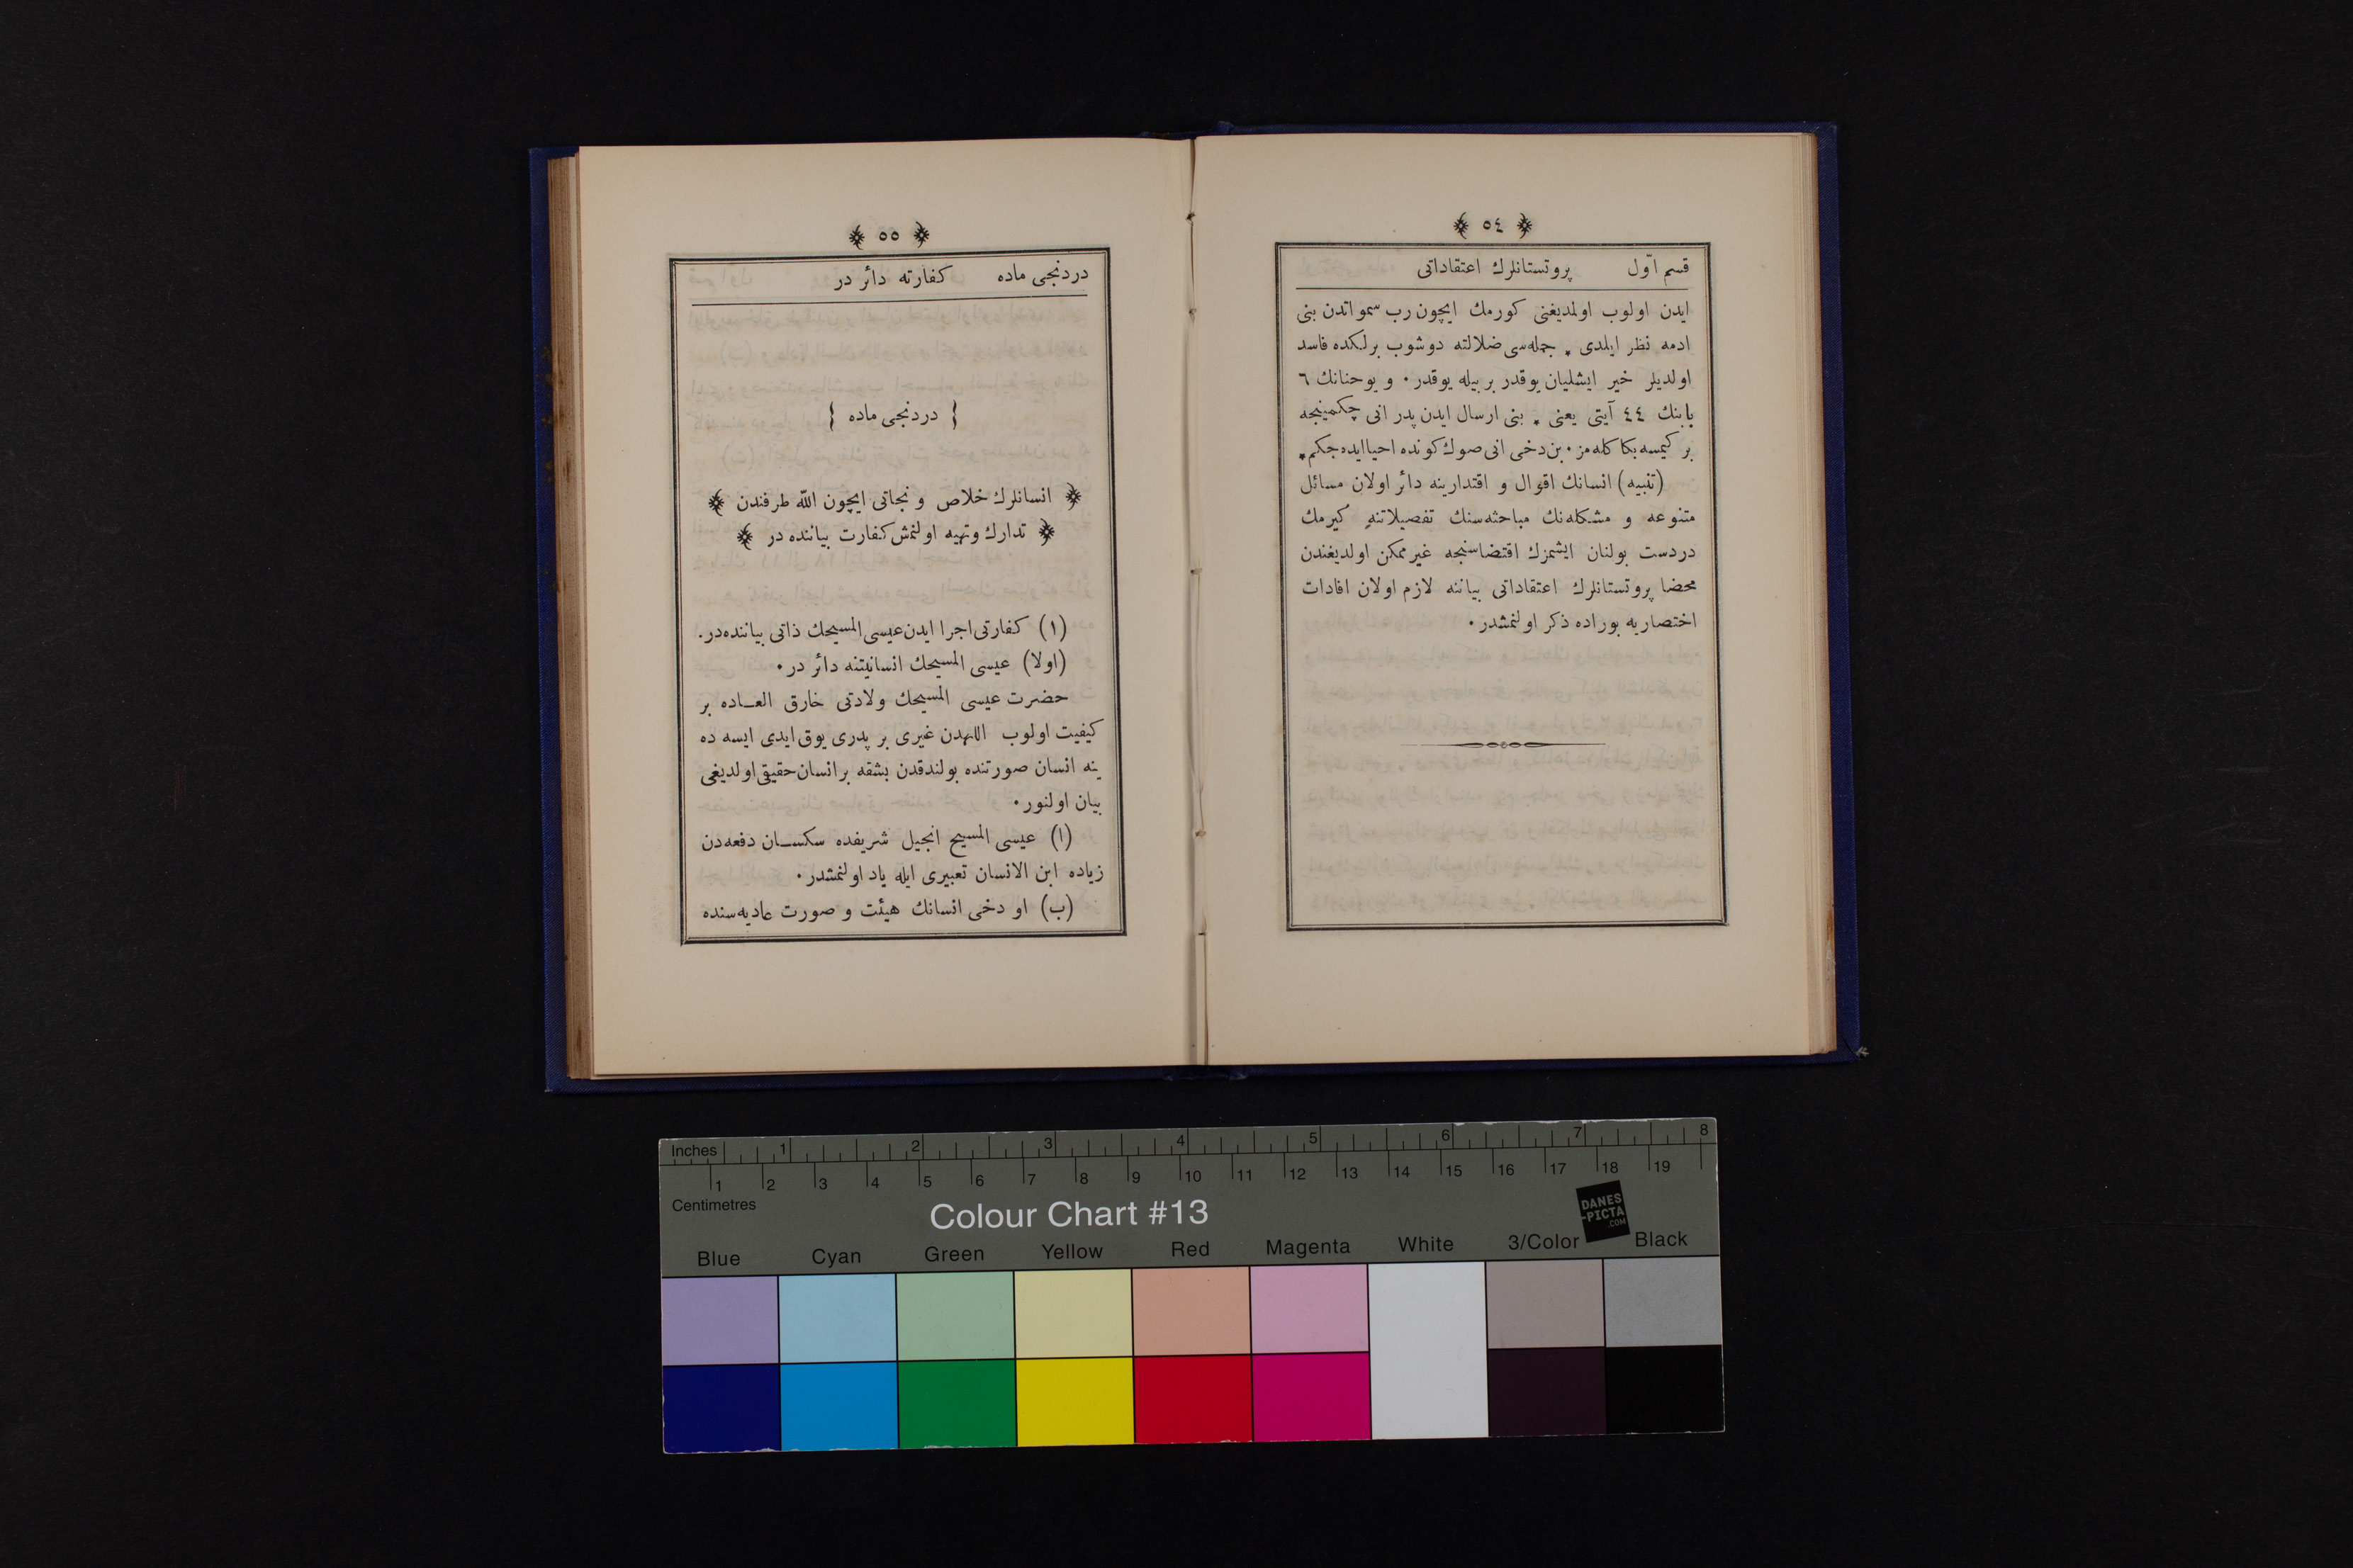 ﴿ ٥٤ ﴾
قسم اوّل پروتستانلرك اعتقاداتی
ایدن اولوب اولمدیغنی كورمك ایچون رب سمواتدن بنی
ادمه نظر ایلدی ٭ جمله‌سی ضلالته دوشوب برلكده فاسد
اولدیلر خیر ایشلیان یوقدر بر بیله یوقدر٠ و یوحنانك ٦
بابنك ٤٤ آیتی یعنی ٭ بنی ارسال ایدن پدر انی چكمینجه
بر كیمسه بكا كله‌مز٠ بن دخی انی صوك كونده احیا ایده جكم٭
(تنبیه) انسانك اقوال و اقتدارینه دائر اولان مسائل
متنوعه و مشكله‌نك مباحثه‌سنك تفصیلاتنه كیرمك
دردست بولنان ایشمزك اقتضاسنجه غیر ممكن اولدیغندن
محضا پروتستانلرك اعتقاداتی بیاننه لازم اولان افادات
اختصاریه بوراده ذكر اولنمشدر٠
﴿ ٥٥ ﴾
دردنجی ماده كفارته دائر در
{ دردنجی ماده }
﴿ انسانلرك خلاص و نجاتی ایچون الله طرفندن ﴾
﴿ تدارك وتهیه اولنمش كفارت بیاننده در ﴾
(١) كفارتی اجرا ایدن عیسی المسیحك ذاتی بیاننده‌در.
(اولا) عیسی المسیحك انسانیتنه دائر در٠
حضرت عیسی المسیحك ولادتی خارق العـاده بر
كیفیت اولوب اللهدن غیری بر پدری یوق ایدی ایسه ده
ینه انسان صورتنده بولندقدن بشقه بر انسان حقیقی اولدیغی
بیان اولنور٠
(ا) عیسی المسیح انجیل شریفده سكسـان دفعه‌دن
زیاده ابن الانسان تعبیری ایله یاد اولنمشدر٠
(ب) او دخی انسانك هیئت و صورت عادیه‌سنده
Inches 1 2 3 4 5 6 7 8
1 2 3 4 5 6 7 8 9 10 11 12 13 14 15 16 17 18 19
Centimetres
Colour Chart #13
DANES
-PICTA
.COM
Blue Cyan Green Yellow Red Magenta White 3/Color Black